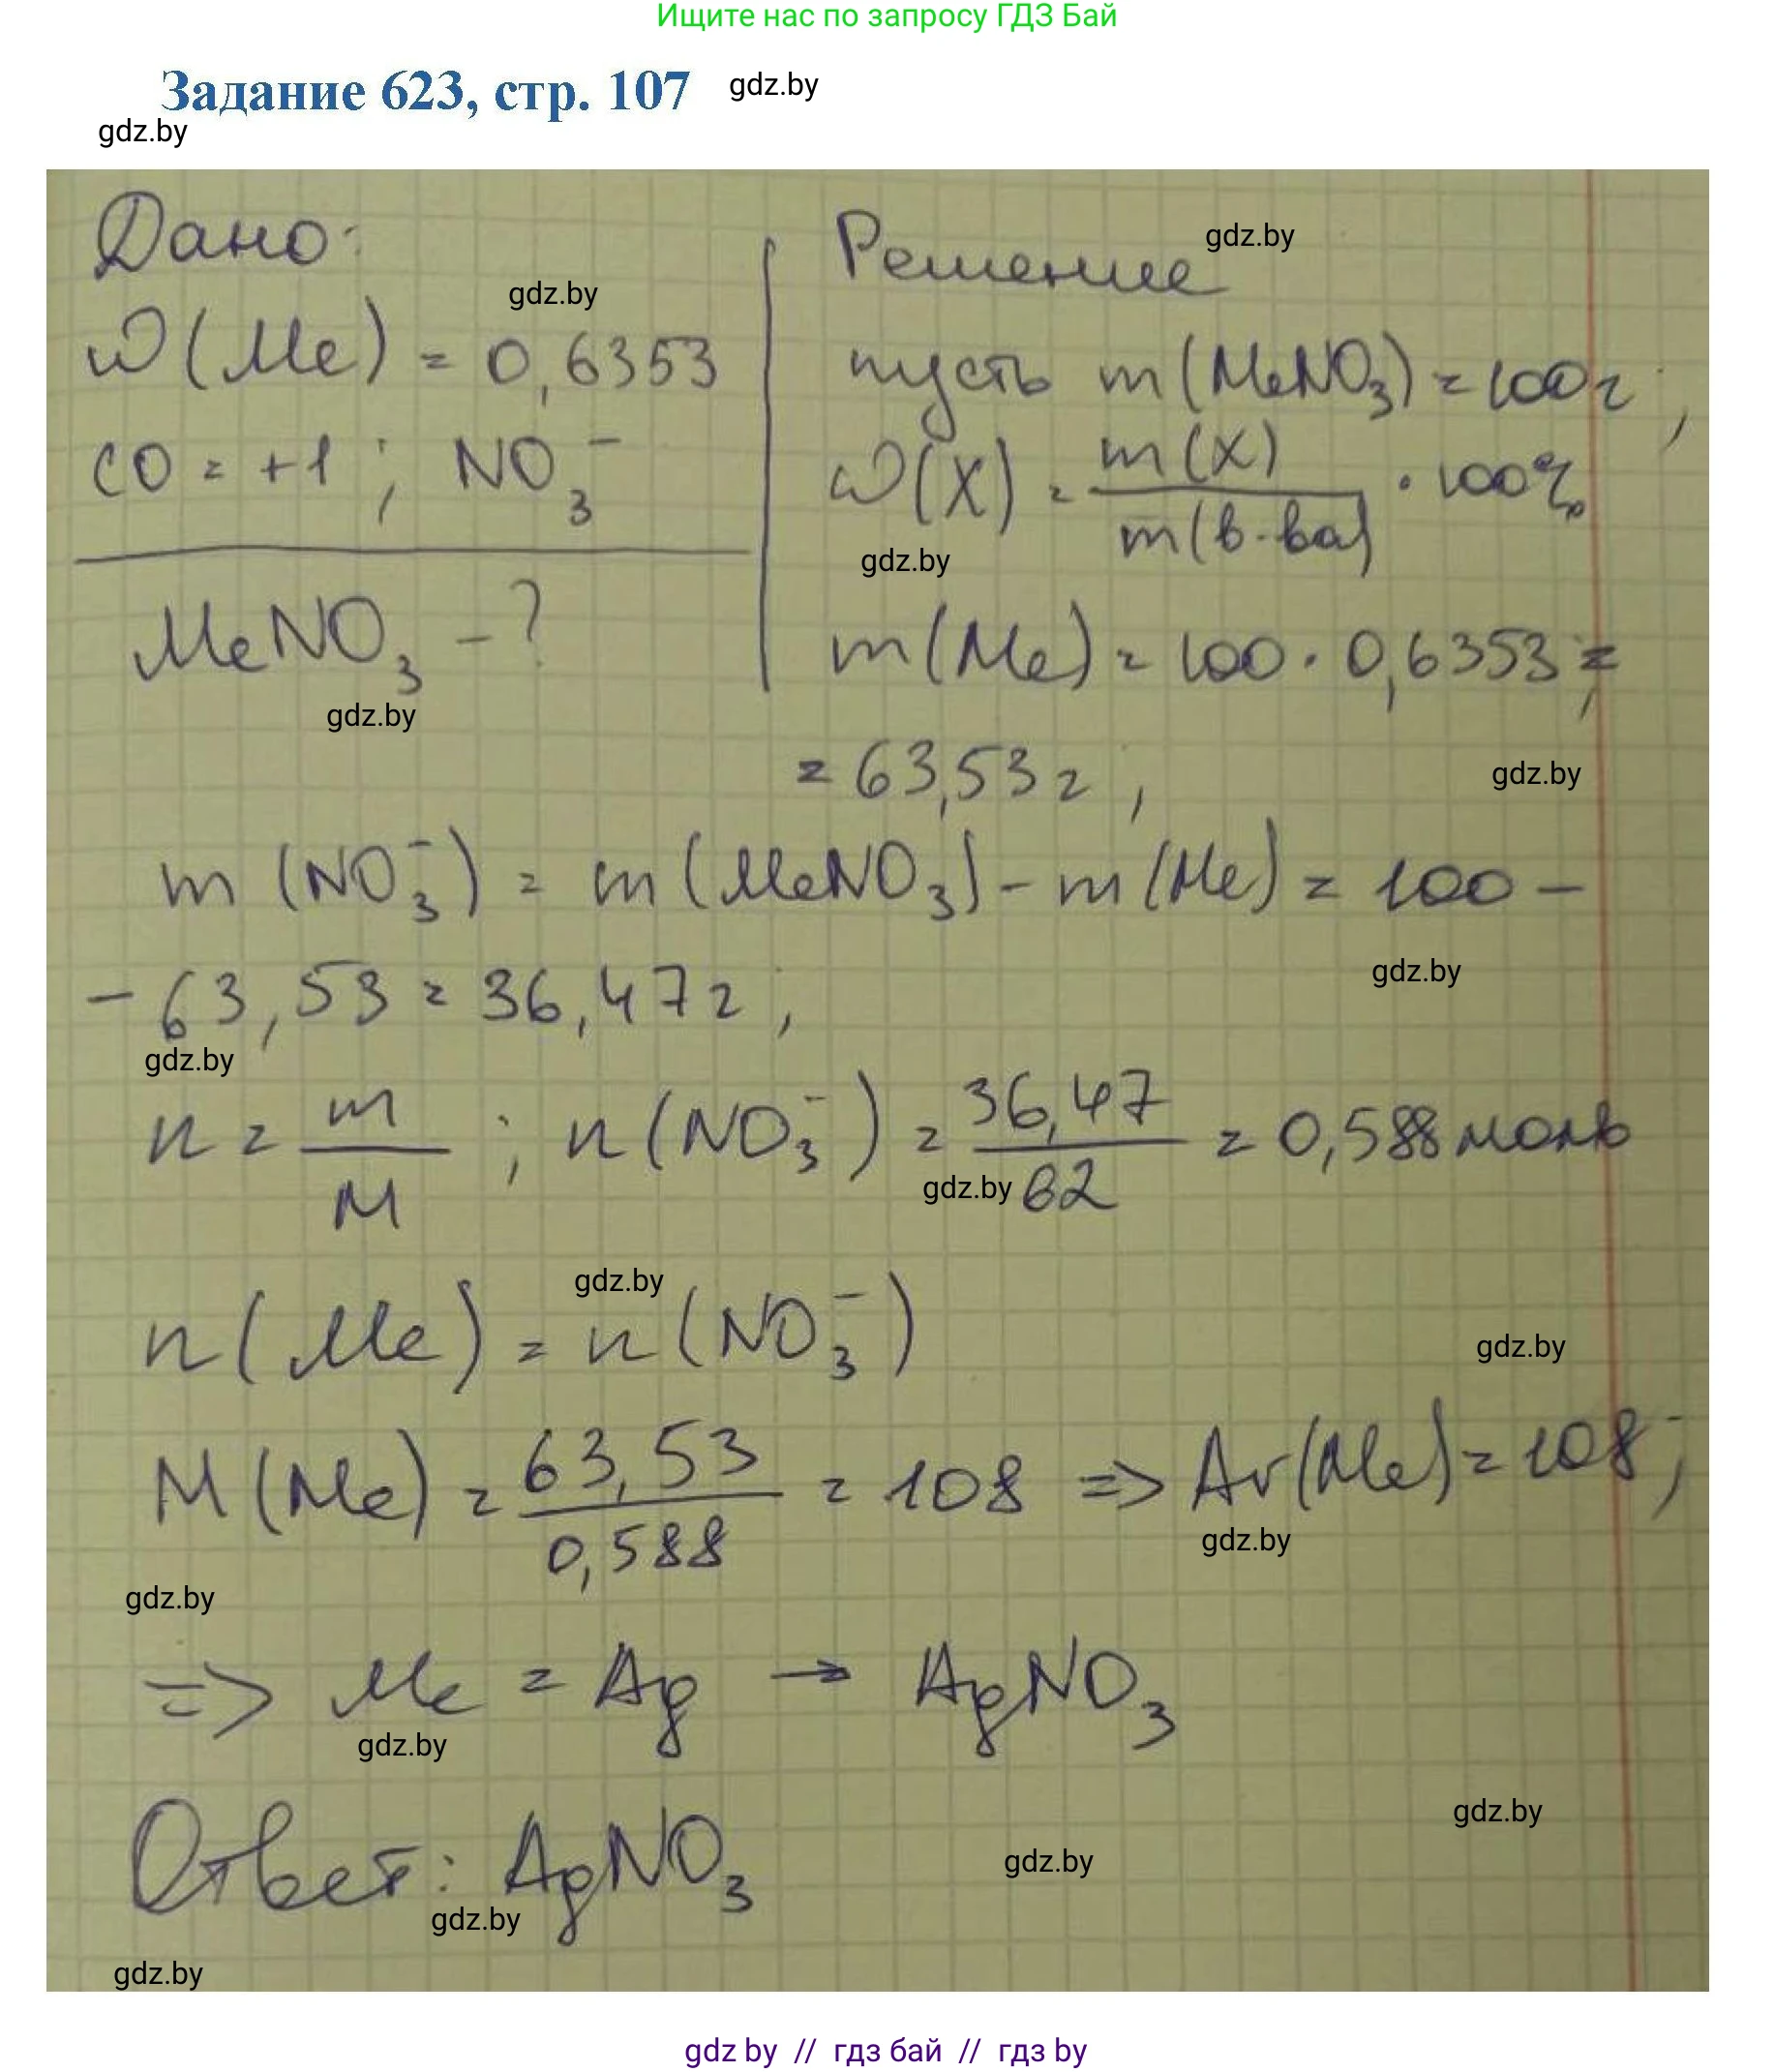 Ищите нас по запросу ГДЗ Бай
Задание 623, стр. 107 gdz.by
gdz.by
Дано:
gdz.by
ω(Me) = 0,6353
СО = +1; NO₃⁻
MeNO₃ - ?
gdz.by
Решение gdz.by
пусть m(MeNO₃) = 100 г;
ω(X) = m(X) / m(в-ва) · 100%
gdz.by
m(Me) = 100 · 0,6353 =
= 63,53 г;
gdz.by
m(NO₃⁻) = m(MeNO₃) - m(Me) = 100 -
gdz.by
- 63,53 = 36,47 г;
gdz.by
n = m / M; n(NO₃⁻) = 36,47 / 62 = 0,588 моль
gdz.by
gdz.by
n(Me) = n(NO₃⁻)
gdz.by
M(Me) = 63,53 / 0,588 = 108 => Ar(Me) = 108;
gdz.by
gdz.by
=> Me = Ag → AgNO₃
gdz.by
gdz.by
Ответ: AgNO₃
gdz.by
gdz.by
gdz.by
gdz by // гдз бай // гдз by